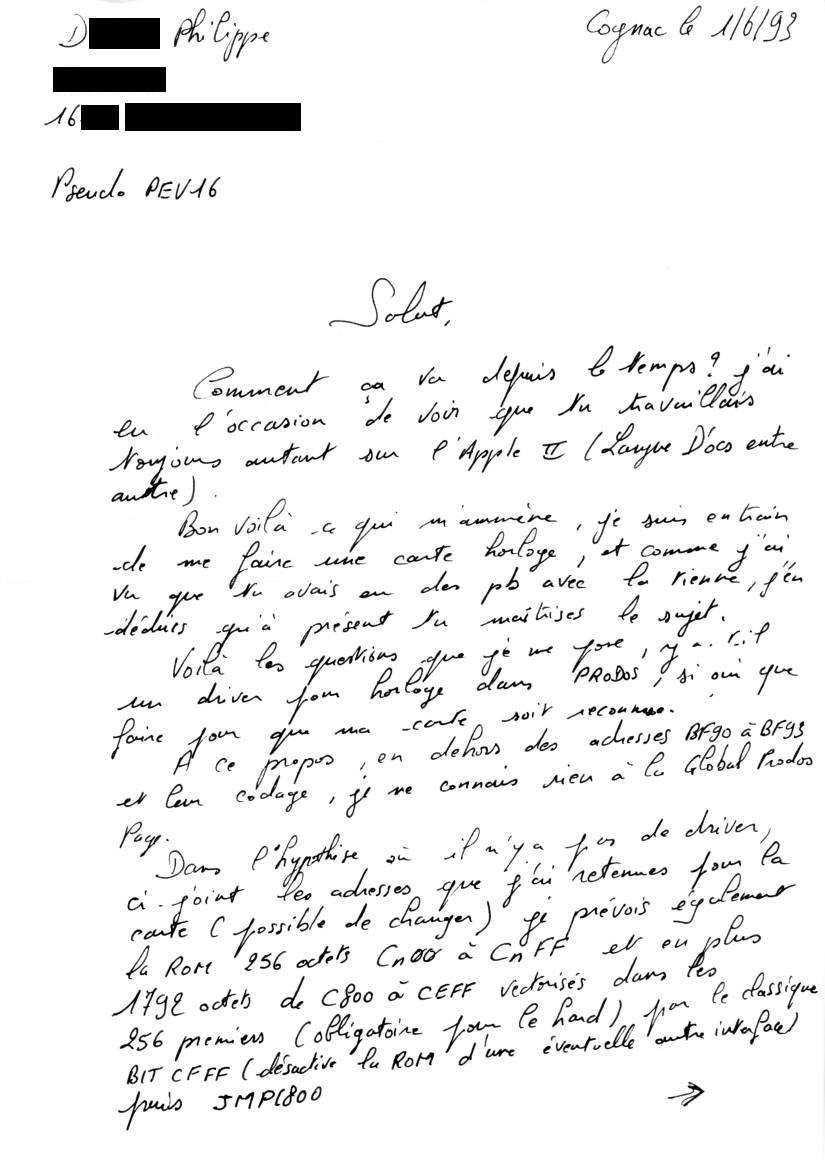 D Philippe
Cognac le 1/6/93
16
Pseudo PEV16
Salut,
Comment ça va depuis le temps? j'ai
eu l'occasion de voir que tu travaillais
toujours autant sur l'Apple II (Langue D'ocs entre
autre).
Bon voilà ce qui m'ammène, je suis en train
de me faire une carte horloge, et comme j'ai
vu que tu avais eu des pb avec la tienne, j'en
déduis qu'à présent tu maîtrises le sujet.
Voilà les questions que je me pose, y a-t-il
un driver pour horloge dans PRODOS, si oui que
faire pour que ma carte soit reconnue.
A ce propos, en dehors des adresses BF90 à BF93
et leur codage, je ne connais rien à la Global Prodos
Page.
Dans l'hypothèse où il n'y a pas de driver,
ci-joint les adresses que j'ai retenues pour la
carte (possible de changer) je prévois également
la ROM 256 octets Cn00 à CnFF et en plus
1792 octets de C800 à CEFF vectorisés dans les
256 premiers (obligatoire pour le hard) par le classique
BIT CFFF (désactive la ROM d'une éventuelle autre interface)
puis JMPC800 →